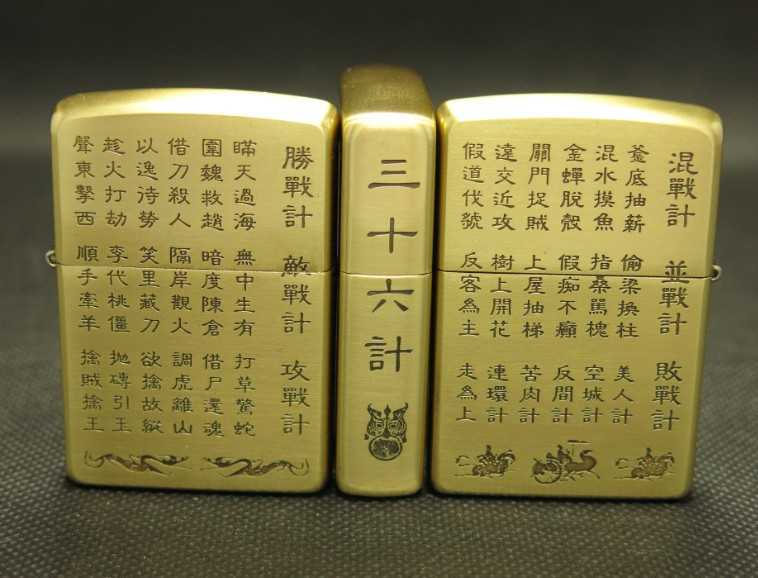 勝戰計
瞞天過海
圍魏救趙
借刀殺人
以逸待勞
趁火打劫
聲東擊西
敵戰計
無中生有
暗度陳倉
隔岸觀火
笑里藏刀
李代桃僵
順手牽羊
攻戰計
打草驚蛇
借尸還魂
調虎離山
欲擒故縱
拋磚引玉
擒賊擒王
三十六計
混戰計
釜底抽薪
混水摸魚
金蟬脫殼
關門捉賊
遠交近攻
假道伐虢
並戰計
偷梁換柱
指桑罵槐
假痴不癲
上屋抽梯
樹上開花
反客為主
敗戰計
美人計
空城計
反間計
苦肉計
連環計
走為上